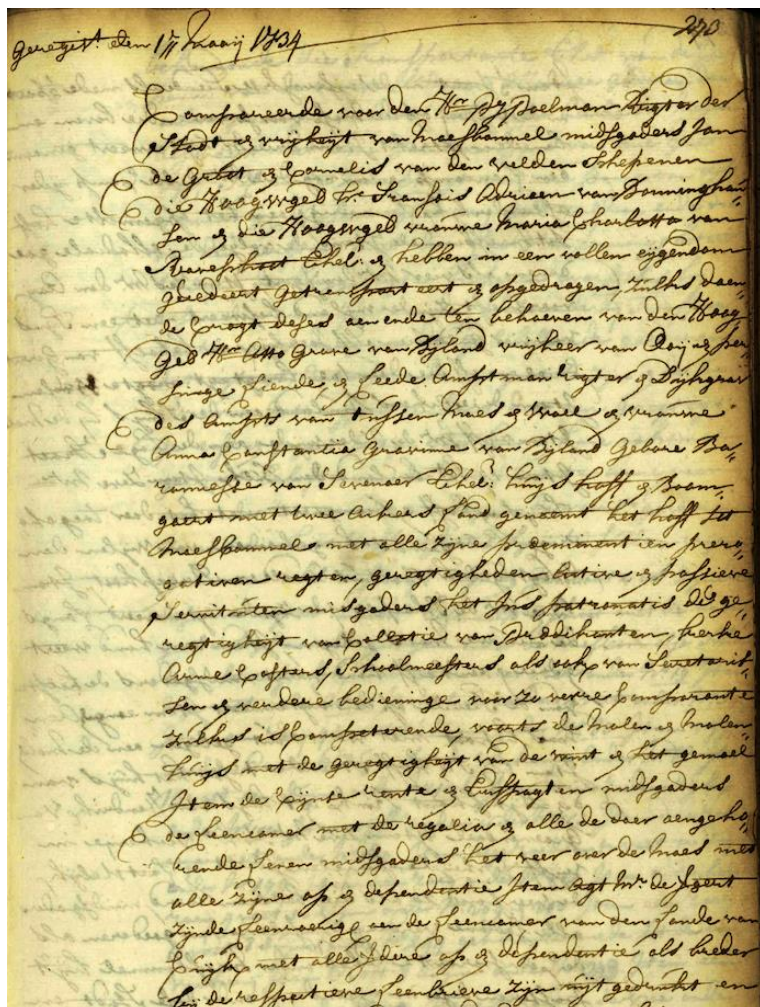 Geregist. den 1 Maaij 1734
273
Compareerde voor den Hr Poelman Rigter der
Stadt & vrijheijt van Maesbommel midsgaders Jan
de Groot & Cornelis van den velden Schepenen
die Hoogwgeb hr. Fransois Adriaen van Donninghau"
sen & die Hoogwgeb vrouwe Maria Charlotta van
Ravesschoot Ehel: & hebben in een vollen eijgendom
gecedeert getransporteert & opgedragen, zulks doen"
de Cragt deses aen ende ten behoeven van den Hoog
Geb Hr Otto Grave van Bijland vrijheer van &
Liende, & Leede Amptman rigter & Dijkgraef
des Ampts van tussen Maes & Wael & vrouwe
Anna Constantia Gravinne van Bijland Gebore Ba"
ronnesse van Sevenaer Ehel: huijs hoff & Boom"
gaert met twee Ackers Land genaemt het hoff tot
Maesbommel met alle zijne prdeminentien prero"
gativen regten, geregtigheden Active & passieve
Servituten misgaders het Jus patronatis de ge"
regtigheijt van Collatie van Prddikanten, kerke
Arme Costers, Schoolmeesters als oock van Secretaris"
sen & verdere bedieninge voor zo verre Comparante
zulks is Competerende, voorts de Molen & Molen"
huijs met de geregtigheijt van de wint & het gemael
Item de Cijnse rente & midsgaders
de Leencamer met de regalia & alle de daer aengeho"
rende Lenen midsgaders het veer over de Maes met
alle zijne ap & dependentie Item Agt M. de
zijnde Leenroerig aen de Leencamer van den Lande van
Cuijk met alle Jdere ap & dependentie als breder
bij de respective Leenbrieve zijn uijt gedrukt en